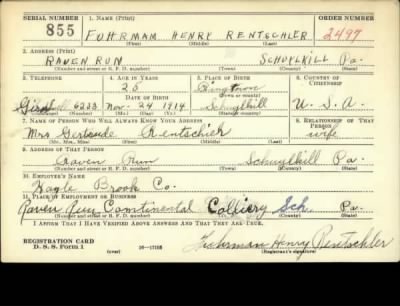 SERIAL NUMBER 1. NAME (Print) ORDER NUMBER
855 FUHRMAN HENRY RENTSCHLER 2497
(First) (Middle) (Last)
2. ADDRESS (Print)
RAVEN RUN SCHUYLKILL Pa.
(Number and street or R. F. D. number) (Town) (County) (State)
3. TELEPHONE 4. AGE IN YEARS 5. PLACE OF BIRTH 6. COUNTRY OF CITIZENSHIP
25 Ringtown
DATE OF BIRTH (Town or county)
6233 Nov. 24 1914 Schuylkill U.S.A.
(Exchange) (Number) (Mo.) (Day) (Yr.) (State or country)
7. NAME OF PERSON WHO WILL ALWAYS KNOW YOUR ADDRESS 8. RELATIONSHIP OF THAT PERSON
Mrs Gertrude Rentschler wife
(Mr., Mrs., Miss) (First) (Middle) (Last)
9. ADDRESS OF THAT PERSON
Raven Run Schuylkill Pa.
(Number and street or R. F. D. number) (Town) (County) (State)
10. EMPLOYER'S NAME
Hazle Brook Co.
11. PLACE OF EMPLOYMENT OR BUSINESS
Raven Run Continental Colliery Sch. Pa.
(Number and street or R. F. D. number) (Town) (County) (State)
I AFFIRM THAT I HAVE VERIFIED ABOVE ANSWERS AND THAT THEY ARE TRUE.
REGISTRATION CARD
D. S. S. Form 1 (over) 16—17105 Fuhrman Henry Rentschler
(Registrant's signature)